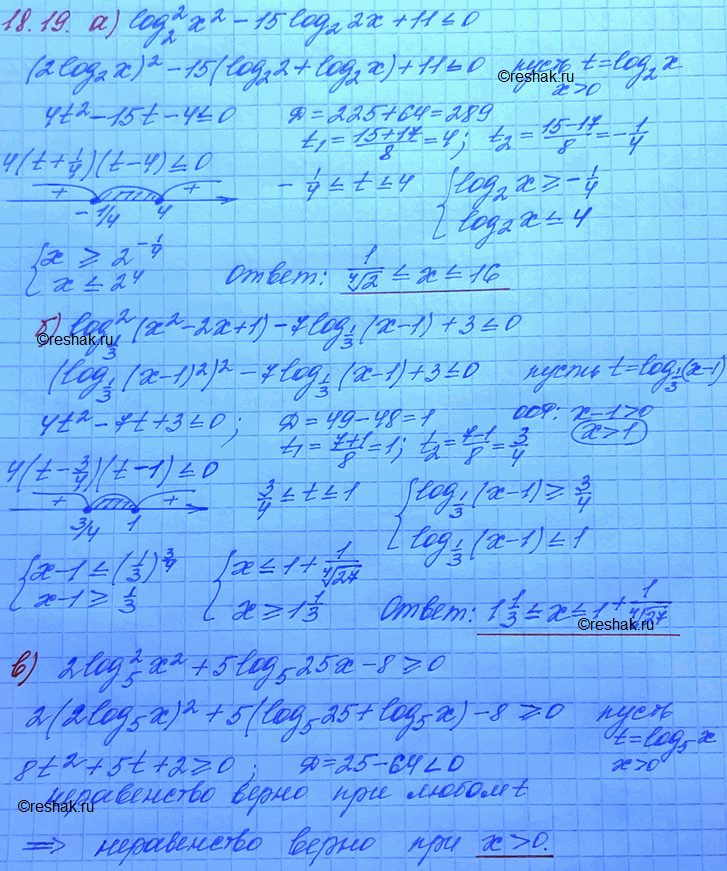 18.19. а) log₂² x² - 15 log₂ 2x + 11 ≤ 0
(2log₂x)² - 15(log₂2 + log₂x) + 11 ≤ 0 пусть t = log₂x
©reshak.ru
x>0
4t² - 15t - 4 ≤ 0 D = 225 + 64 = 289
t₁ = (15+17)/8 = 4; t₂ = (15-17)/8 = -1/4
4(t + 1/4)(t - 4) ≤ 0
+ + -1/4 4
-1/4 ≤ t ≤ 4 { log₂x ≥ -1/4
log₂x ≤ 4
{ x ≥ 2^(-1/4)
x ≤ 2⁴ ответ: 1/⁴√2 ≤ x ≤ 16
©reshak.ru
б) log²_(1/3) (x² - 2x + 1) - 7log_(1/3) (x-1) + 3 ≤ 0
(log_(1/3) (x-1)²)² - 7log_(1/3) (x-1) + 3 ≤ 0 пусть t = log_(1/3) (x-1)
4t² - 7t + 3 ≤ 0; D = 49 - 48 = 1 ООФ: x-1>0
t₁ = (7+1)/8 = 1; t₂ = (7-1)/8 = 3/4 x>1
4(t - 3/4)(t - 1) ≤ 0
+ + 3/4 1
3/4 ≤ t ≤ 1 { log_(1/3) (x-1) ≥ 3/4
log_(1/3) (x-1) ≤ 1
{ x-1 ≤ (1/3)^(3/4) { x ≤ 1 + 1/⁴√27
x-1 ≥ 1/3 x ≥ 1 1/3 ответ: 1 1/3 ≤ x ≤ 1 + 1/⁴√27
©reshak.ru
в) 2log₅² x² + 5log₅ 25x - 8 ≥ 0
2(2log₅x)² + 5(log₅25 + log₅x) - 8 ≥ 0 пусть
t = log₅x
8t² + 5t + 2 ≥ 0; D = 25 - 64 < 0 x>0
неравенство верно при любом t
©reshak.ru
⇒ неравенство верно при x>0.